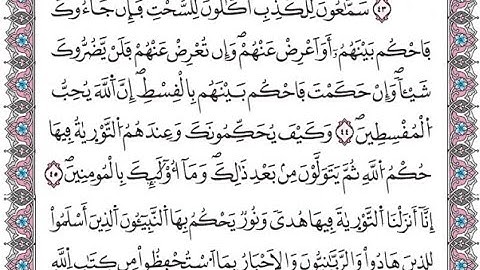 ٤٣ سَمَّٰعُونَ لِلْكَذِبِ أَكَّٰلُونَ لِلسُّحْتِ فَإِن جَآءُوكَ
فَاحْكُم بَيْنَهُمُۥٓ أَوَ اَعْرِضْ عَنْهُمْ وَإِن تُعْرِضْ عَنْهُمْ فَلَنْ يَّضُرُّوكَ
شَيْـٔاً وَإِنْ حَكَمْتَ فَاحْكُم بَيْنَهُم بِالْقِسْطِ إِنَّ اَللَّهَ يُحِبُّ
اُلْمُقْسِطِينَ ٤٤ وَكَيْفَ يُحَكِّمُونَكَ وَعِندَهُمُ اُلتَّوْرَيٰةُ فِيهَا
حُكْمُ اُللَّهِ ثُمَّ يَتَوَلَّوْنَ مِنۢ بَعْدِ ذَٰلِكَ وَمَآ أُوْلَٰٓئِكَ بِالْمُومِنِينَ ٤٥
إِنَّآ أَنزَلْنَا اَلتَّوْرَيٰةَ فِيهَا هُدىً وَنُورٌ يَحْكُمُ بِهَا اَلنَّبِيٓـُٔونَ اَلذِينَ أَسْلَمُواْ
لِلذِينَ هَادُواْ وَالرَّبَّٰنِيُّونَ وَالَاحْبَارُ بِمَا اَسْتُحْفِظُواْ مِن كِتَٰبِ اِللَّهِ